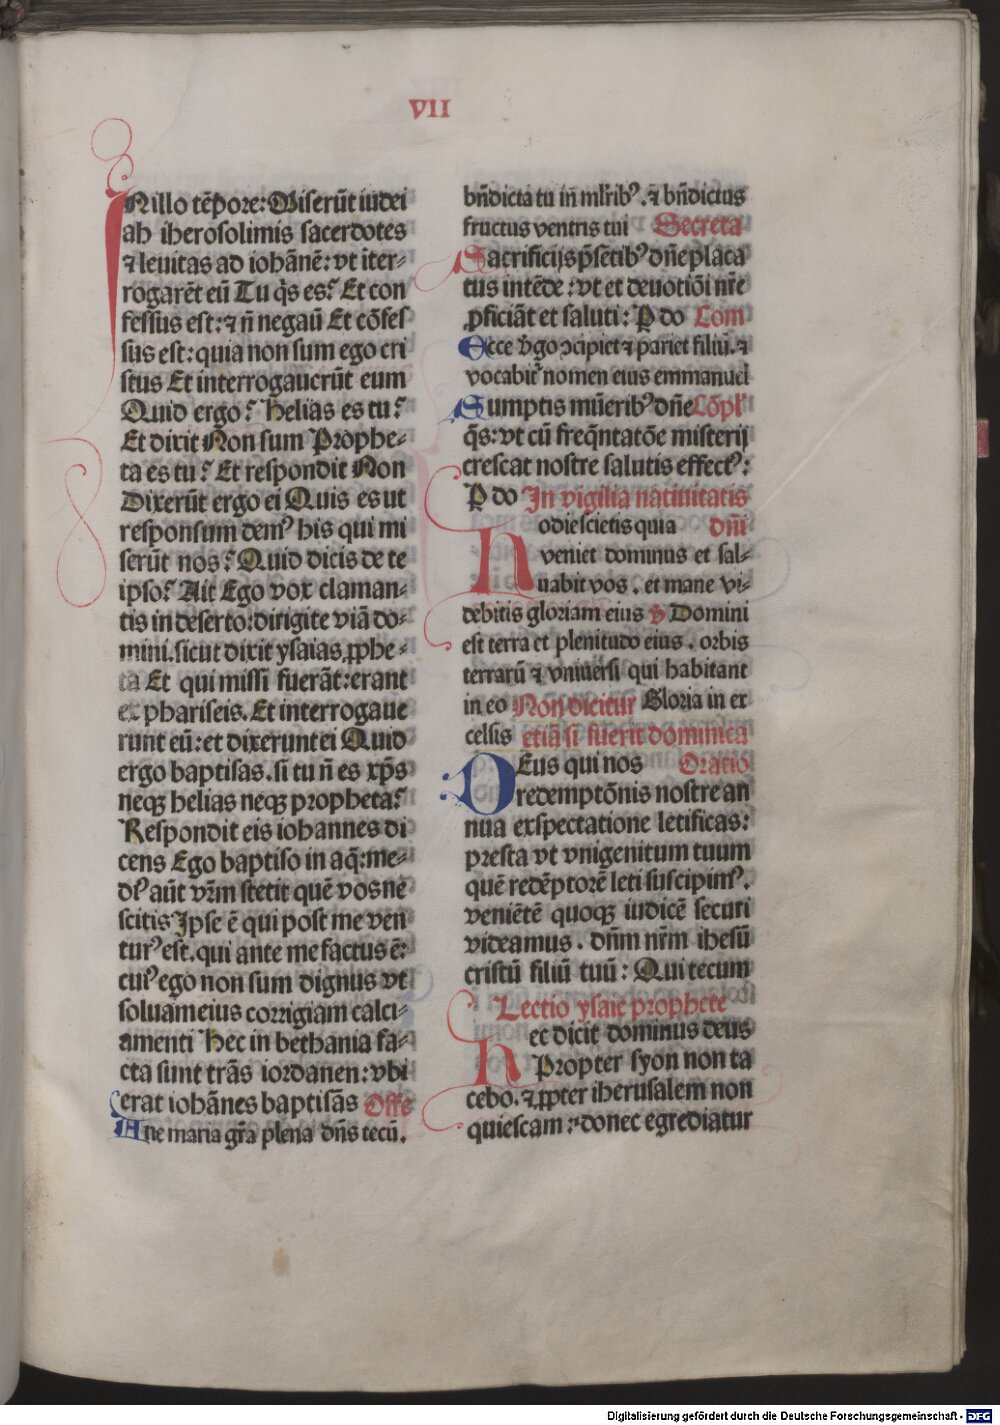 VII
INillo tēpore: Miserūt iudei
ab iherosolimis sacerdotes
⁊ leuitas ad iohānē: vt iter⸗
rogarēt eū Tu q̄s es? Et con
fessus est: ⁊ n̄ negau̅ Et cōfes
sus est: quia non sum ego cri
stus Et interrogauerūt eum
Quid ergo? Helias es tu?
Et dixit Non sum Prophe⸗
ta es tu? Et respondit Non
Dixerūt ergo ei Quis es ut
responsum demꝰ his qui mi
serūt nos? Quid dicis de te
ipso? Ait Ego vox claman⸗
tis in deserto: dirigite viā do⸗
mini. sicut dixit ysaias ꝓphe⸗
ta Et qui missi fuerāt: erant
ex phariseis. Et interrogaue
runt eū: et dixerunt ei Quid
ergo baptisas. si tu n̄ es xp̄s
neqꝫ helias neqꝫ propheta?
Respondit eis iohannes di
cens Ego baptiso in aq̄: me⸗
dꝰ aūt vr̄m stetit quē vos ne
scitis Ipse ē qui post me ven
turꝰ est. qui ante me factus ē:
cuiꝰ ego non sum dignus vt
soluam eius corrigiam calci⸗
amenti Hec in bethania fa⸗
cta sunt trās iordanen: vbi
erat iohānes baptisās Offe
Aue maria gr̄a plena dn̄s tecū.
bn̄dicta tu in ml̄ribꝰ. ⁊ bn̄dictus
fructus ventris tui Secreta
Sacrificijs p̄sētibꝰ dn̄e placa
tus intēde: vt et deuotiōi nr̄e
ꝓficiāt et saluti: P do Com
Ecce v̄go ↄcipiet ⁊ pariet filiū. ⁊
vocabit̄ nomen eius emmanuel
Sumptis mūeribꝰ dn̄e Cōpl̄
q̄s: vt cū freq̄ntatōe misterij
crescat nostre salutis effectꝰ:
P do In vigilia natiuitatis
Hodie scietis quia dn̄i
veniet dominus et sal⸗
uabit vos. et mane vi⸗
debitis gloriam eius ꝟ Domini
est terra et plenitudo eius. orbis
terrarū ⁊ vniuersi qui habitant
in eo Non dicitur Gloria in ex
celsis etiā si fuerit dominica
DEus qui nos Oratio
redemptōnis nostre an
nua exspectatione letificas:
presta vt vnigenitum tuum
quē redēptorē leti suscipimꝰ.
veniētē quoqꝫ iudicē securi
videamus. dn̄m nr̄m ihesū
cristū filiū tuū: Qui tecum
Lectio ysaie prophete
Hec dicit dominus deus
Propter syon non ta
cebo. ⁊ ꝓpter iherusalem non
quiescam: donec egrediatur
Digitalisierung gefördert durch die Deutsche Forschungsgemeinschaft - DFG